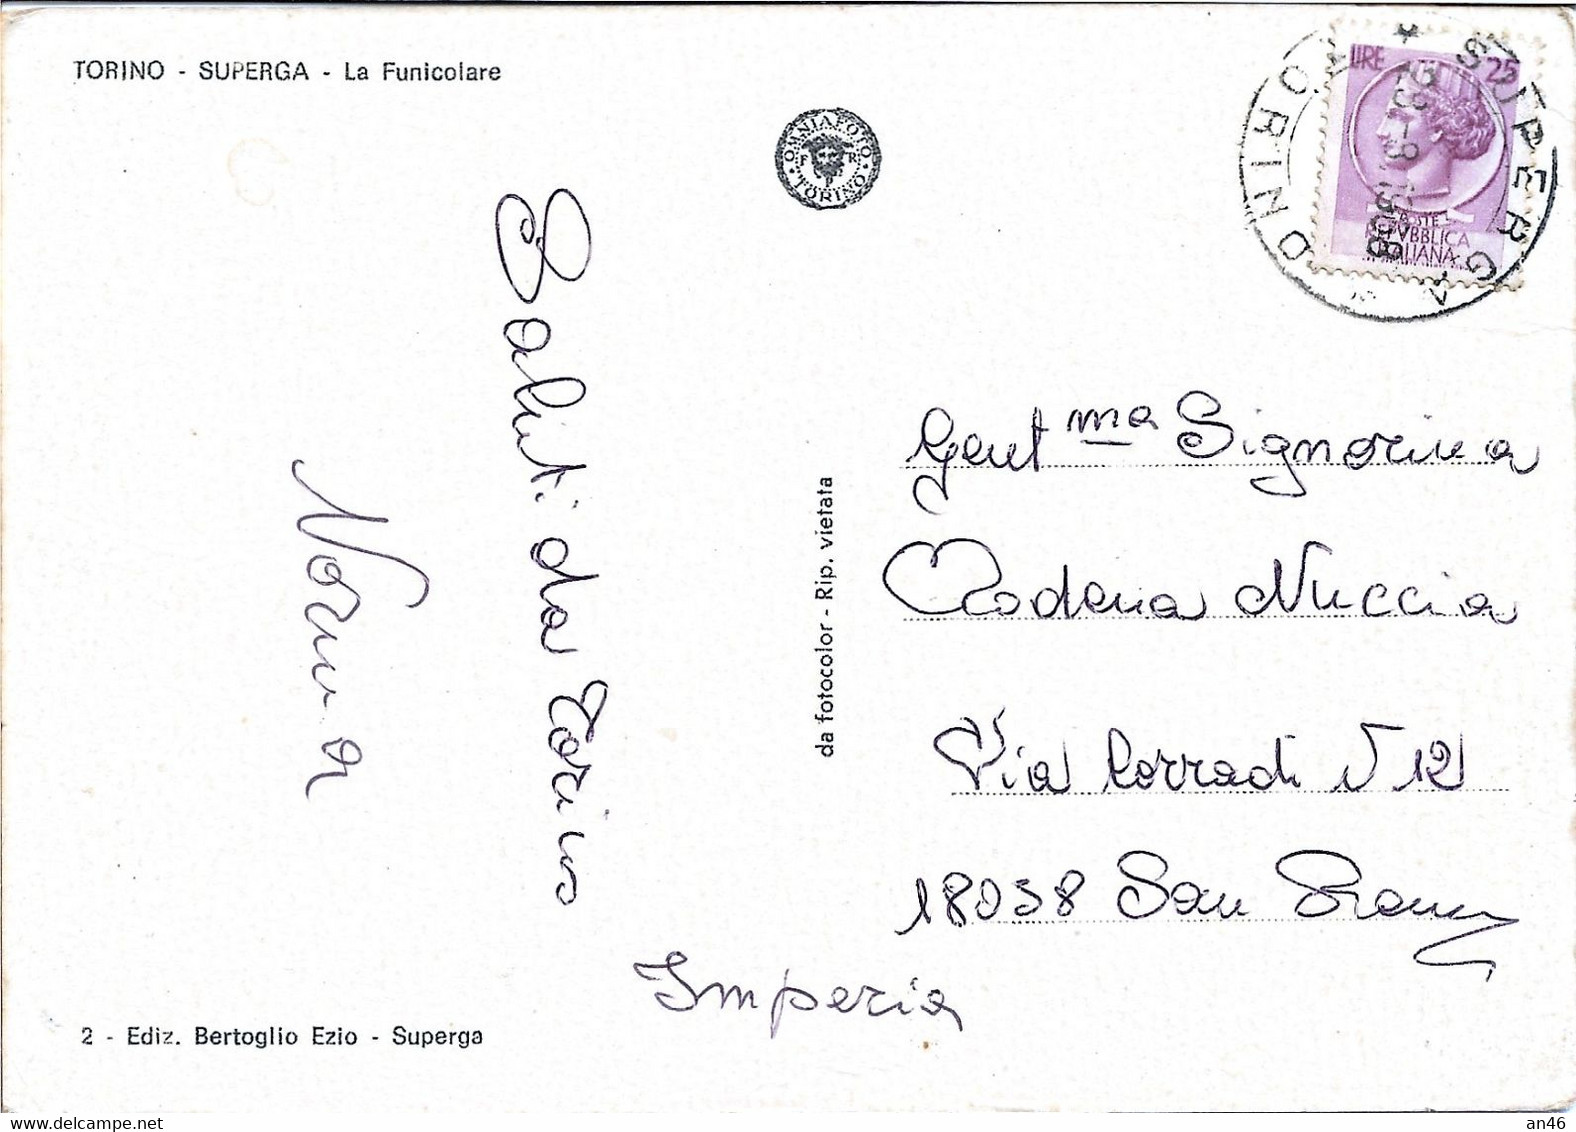 TORINO - SUPERGA - La Funicolare
OMNIAFOTO
F R
TORINO
LIRE 25
POSTE
REPVBBLICA
ITALIANA
SUPERGA
TORINO
Saluti da Torino
Norma
da fotocolor - Rip. vietata
Gent ma Signorina
Modena Nuccia
Via Corradi N 12
18038 San Remo
Imperia
2 - Ediz. Bertoglio Ezio - Superga
delcampe.net
an46